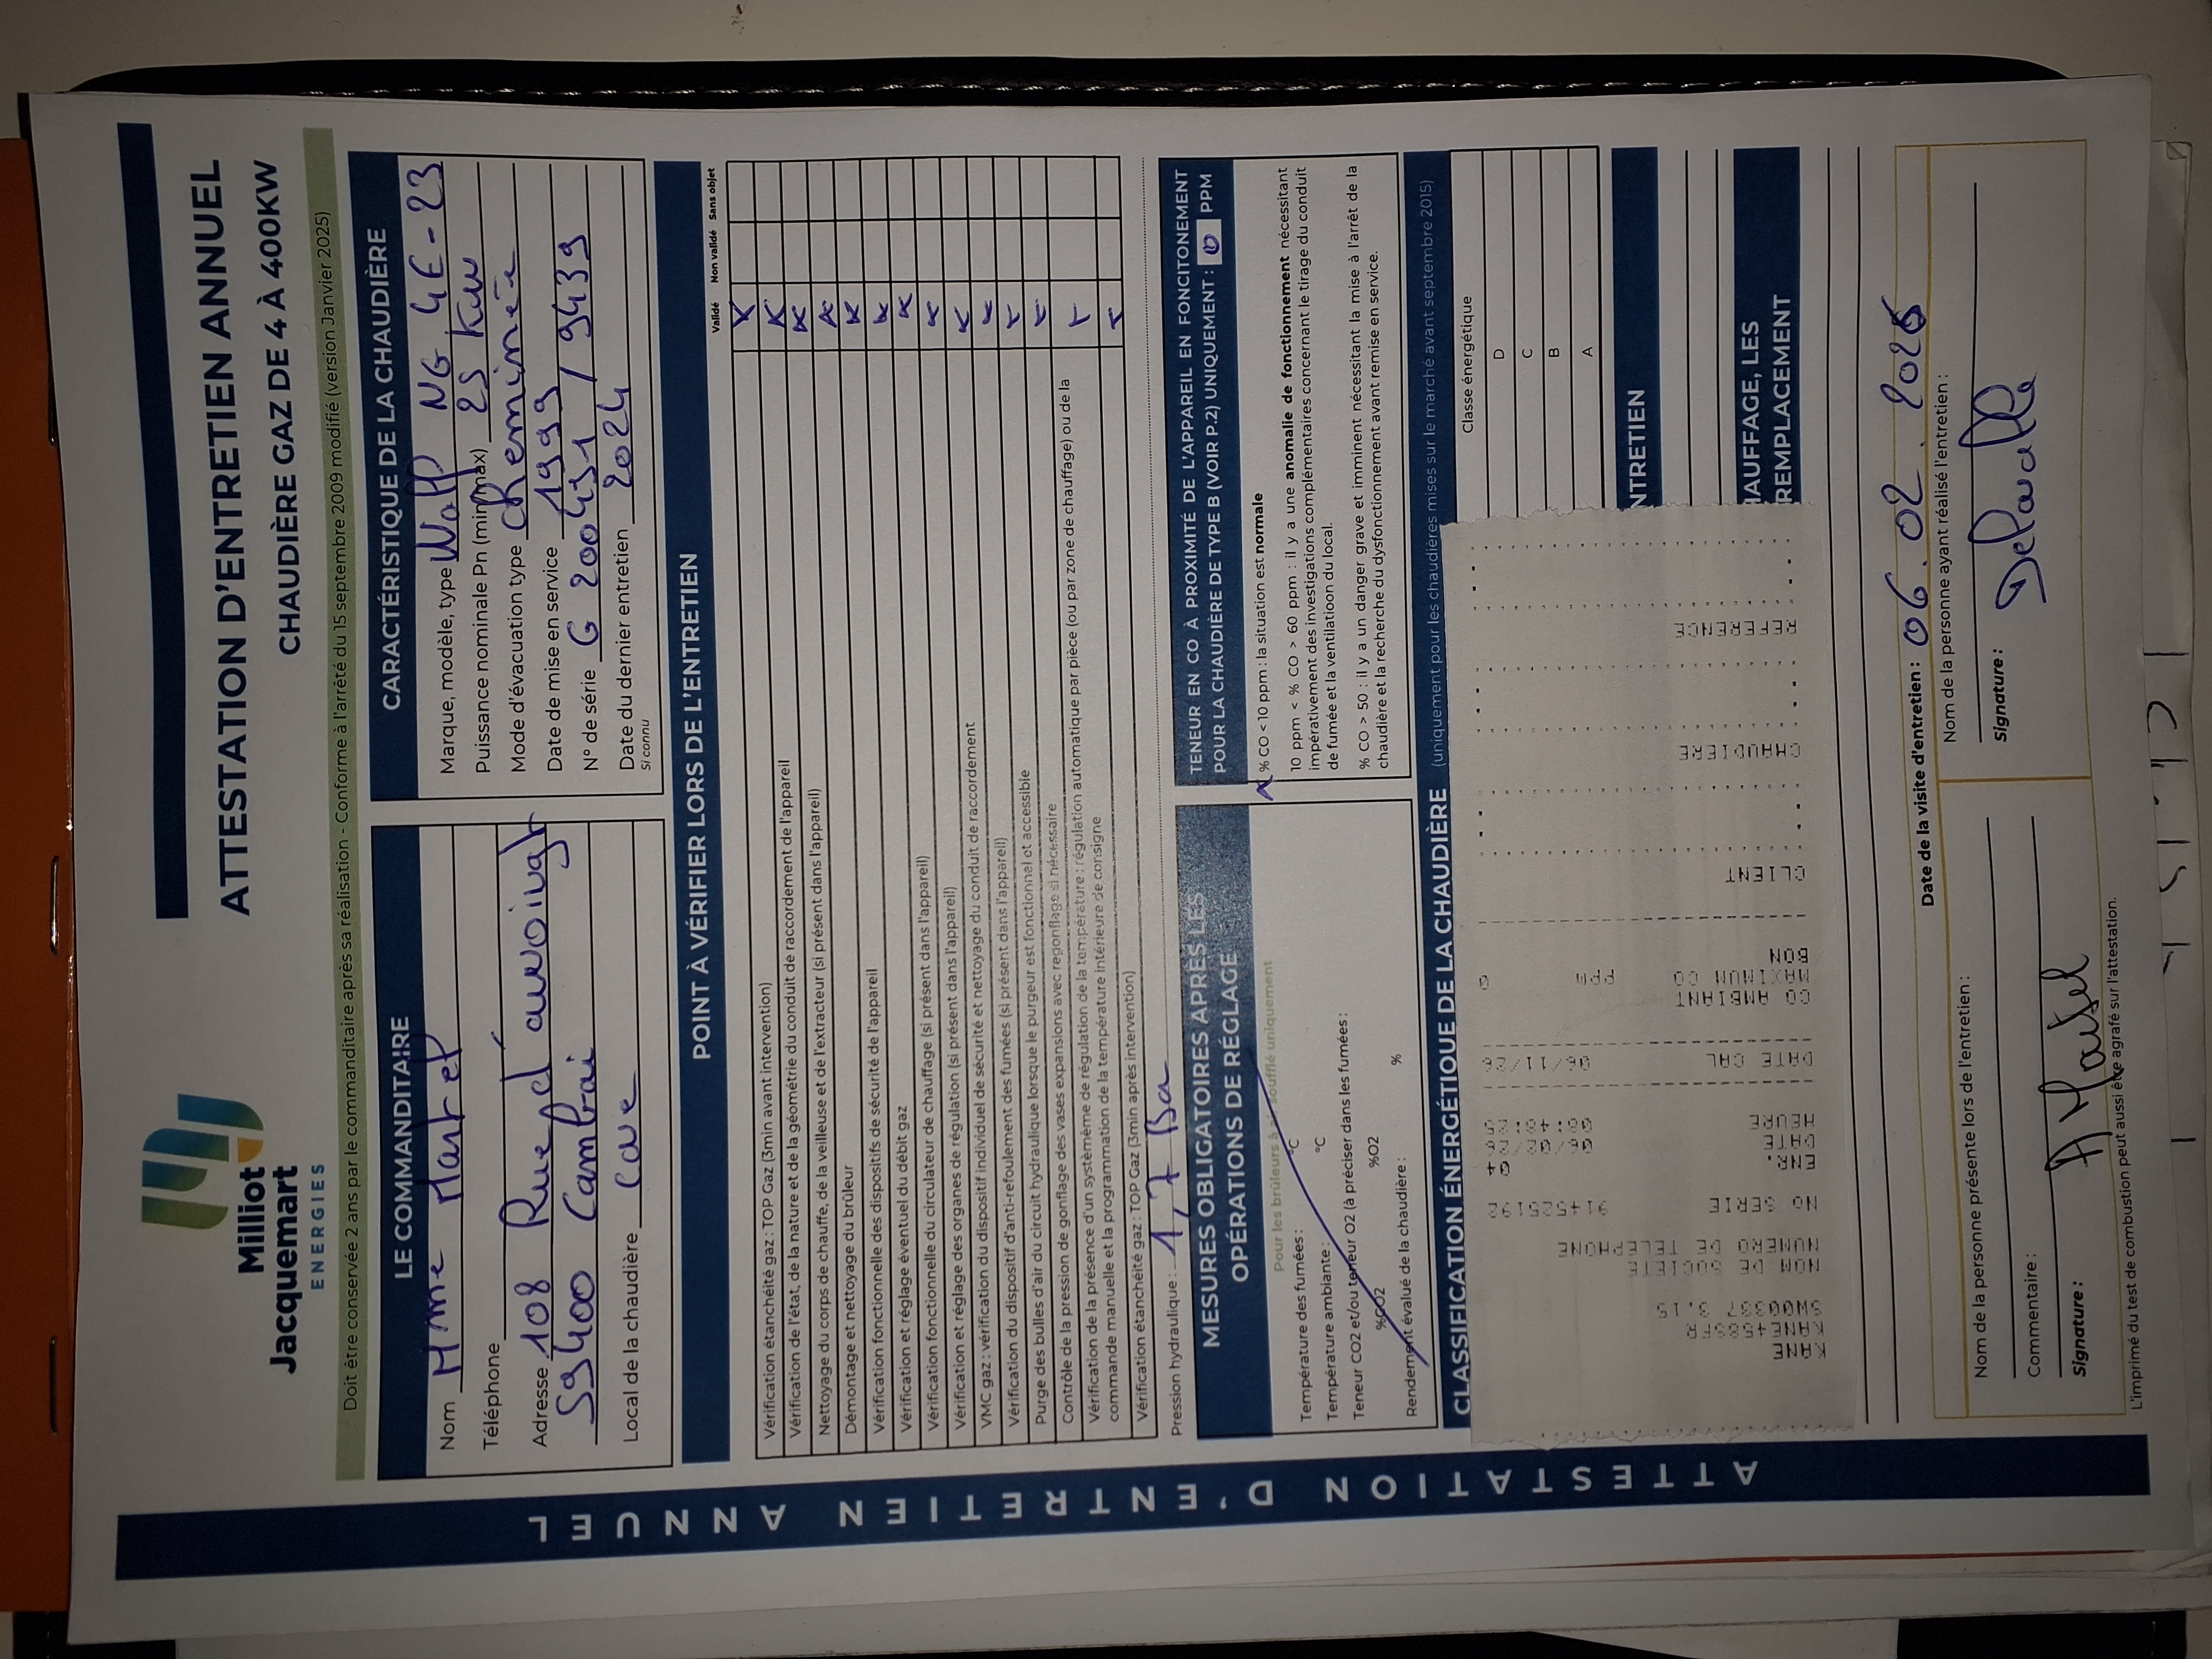 Milliot
Jacquemart
ENERGIES
ATTESTATION D'ENTRETIEN ANNUEL
CHAUDIÈRE GAZ DE 4 À 400KW
Doit être conservée 2 ans par le commanditaire après sa réalisation - Conforme à l'arrêté du 15 septembre 2009 modifié (version Janvier 2025)
LE COMMANDITAIRE
Nom Mme Martel
Téléphone
Adresse 108 Rue d'
59400 Cambrai
Local de la chaudière Cave
CARACTÉRISTIQUE DE LA CHAUDIÈRE
Marque, modèle, type Wolff NG 4E-23
Puissance nominale Pn (min/max) 25 Kw
Mode d'évacuation type cheminée
Date de mise en service 1999
N° de série G 200451 / 9439
Date du dernier entretien 2024
Si connu
POINT À VÉRIFIER LORS DE L'ENTRETIEN
Validé Non validé Sans objet
Vérification étanchéité gaz : TOP Gaz (3min avant intervention) X
Vérification de l'état, de la nature et de la géométrie du conduit de raccordement de l'appareil X
Nettoyage du corps de chauffe, de la veilleuse et de l'extracteur (si présent dans l'appareil) X
Démontage et nettoyage du brûleur X
Vérification fonctionnelle des dispositifs de sécurité de l'appareil X
Vérification et réglage éventuel du débit gaz X
Vérification fonctionnelle du circulateur de chauffage (si présent dans l'appareil) X
Vérification et réglage des organes de régulation (si présent dans l'appareil) X
VMC gaz : vérification du dispositif individuel de sécurité et nettoyage du conduit de raccordement X
Vérification du dispositif d'anti-refoulement des fumées (si présent dans l'appareil) X
Purge des bulles d'air du circuit hydraulique lorsque le purgeur est fonctionnel et accessible X
Contrôle de la pression de gonflage des vases expansions avec regonflage si nécessaire
Vérification de la présence d'un systèmème de régulation de la température : régulation automatique par pièce (ou par zone de chauffage) ou de la
commande manuelle et la programmation de la température intérieure de consigne X
Vérification étanchéité gaz : TOP Gaz (3min après intervention) X
Pression hydraulique : 1,7 Ba
MESURES OBLIGATOIRES APRÈS LES
OPÉRATIONS DE RÉGLAGE
Pour les brûleurs à air soufflé uniquement
Température des fumées : °C
Température ambiante : °C
Teneur CO2 et/ou teneur O2 (à préciser dans les fumées :
%CO2 %O2
Rendement évalué de la chaudière : %
TENEUR EN CO À PROXIMITÉ DE L'APPAREIL EN FONCITONEMENT
POUR LA CHAUDIÈRE DE TYPE B (VOIR P.2) UNIQUEMENT : 0 PPM
% CO < 10 ppm : la situation est normale
10 ppm < % CO > 60 ppm : il y a une anomalie de fonctionnement nécessitant
impérativement des investigations complémentaires concernant le tirage du conduit
de fumée et la ventilatioon du local.
% CO > 50 : il y a un danger grave et imminent nécessitant la mise à l'arrêt de la
chaudière et la recherche du dysfonctionnement avant remise en service.
CLASSIFICATION ÉNERGÉTIQUE DE LA CHAUDIÈRE (uniquement pour les chaudières mises sur le marché avant septembre 2015)
Classe énergétique
D
C
B
A
NTRETIEN
AUFFAGE, LES
REMPLACEMENT
KANE
KANE458SFR
SW00337 3.15
NOM DE SOCIETE
NUMERO DE TELEPHONE
NO SERIE 914525192
ENR. 04
DATE 06/02/26
HEURE 00:48:25
DATE CAL 06/11/26
CO AMBIANT
MAXIMUM CO PPM 0
BON
CLIENT
CHAUDIERE
REFERENCE
Date de la visite d'entretien : 06.02.2026
Nom de la personne présente lors de l'entretien :
Commentaire :
Signature : A Martel
Nom de la personne ayant réalisé l'entretien :
Signature : Delavalle
L'imprimé du test de combustion peut aussi être agrafé sur l'attestation.
ATTESTATION D'ENTRETIEN ANNUEL